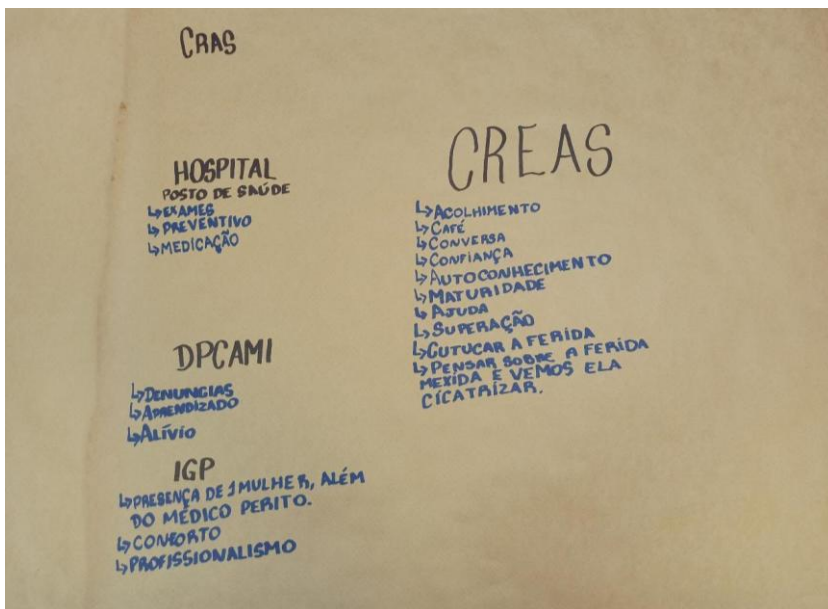 CRAS
HOSPITAL
POSTO DE SAÚDE
↳EXAMES
↳PREVENTIVO
↳MEDICAÇÃO
DPCAMI
↳DENUNCIAS
↳APRENDIZADO
↳ALÍVIO
IGP
↳PRESENÇA DE 1 MULHER, ALÉM
DO MÉDICO PERITO.
↳CONFORTO
↳PROFISSIONALISMO
CREAS
↳ACOLHIMENTO
↳CAFÉ
↳CONVERSA
↳CONFIANÇA
↳AUTOCONHECIMENTO
↳MATURIDADE
↳AJUDA
↳SUPERAÇÃO
↳CUTUCAR A FERIDA
↳PENSAR SOBRE A FERIDA
MEXIDA E VEMOS ELA
CICATRIZAR.